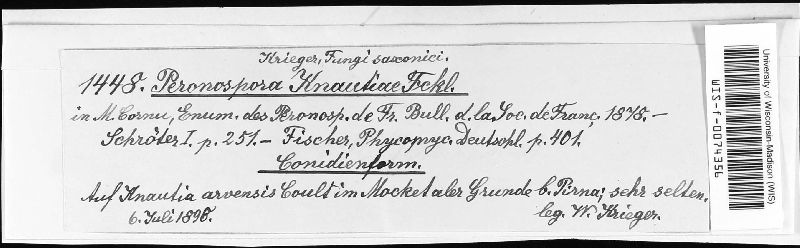 Krieger, Fungi saxonici.
1448. Peronospora Knautiae Fckl.
in M. Cornu, Enum. des Peronosp. de Fr. Bull. d. la Soc. de Franç. 1878. —
Schröter I. p. 251. — Fischer, Phycomyc. Deutschl. p. 401.
Conidienform.
Auf Knautia arvensis Coult im Mocketaler Grunde b. Pirna; sehr selten.
6. Juli 1898.
leg. W. Krieger.
University of Wisconsin-Madison (WIS)
WIS-f-0074356